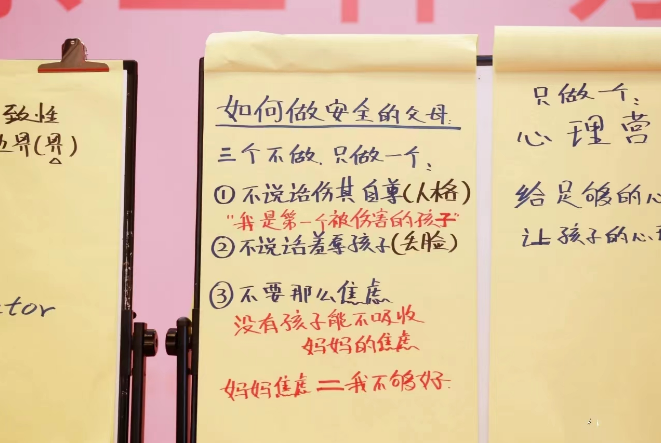 致性
界(界)
ctor
如何做安全的父母:
三个不做.只做一个:
① 不说话伤其自尊(人格)
"我是第一个被伤害的孩子"
② 不说话羞辱孩子(丢脸)
③ 不要那么焦虑
没有孩子能不吸收
妈妈的焦虑
妈妈焦虑=我不够好.
只做一个:
心理营
给足够的心
让孩子的心